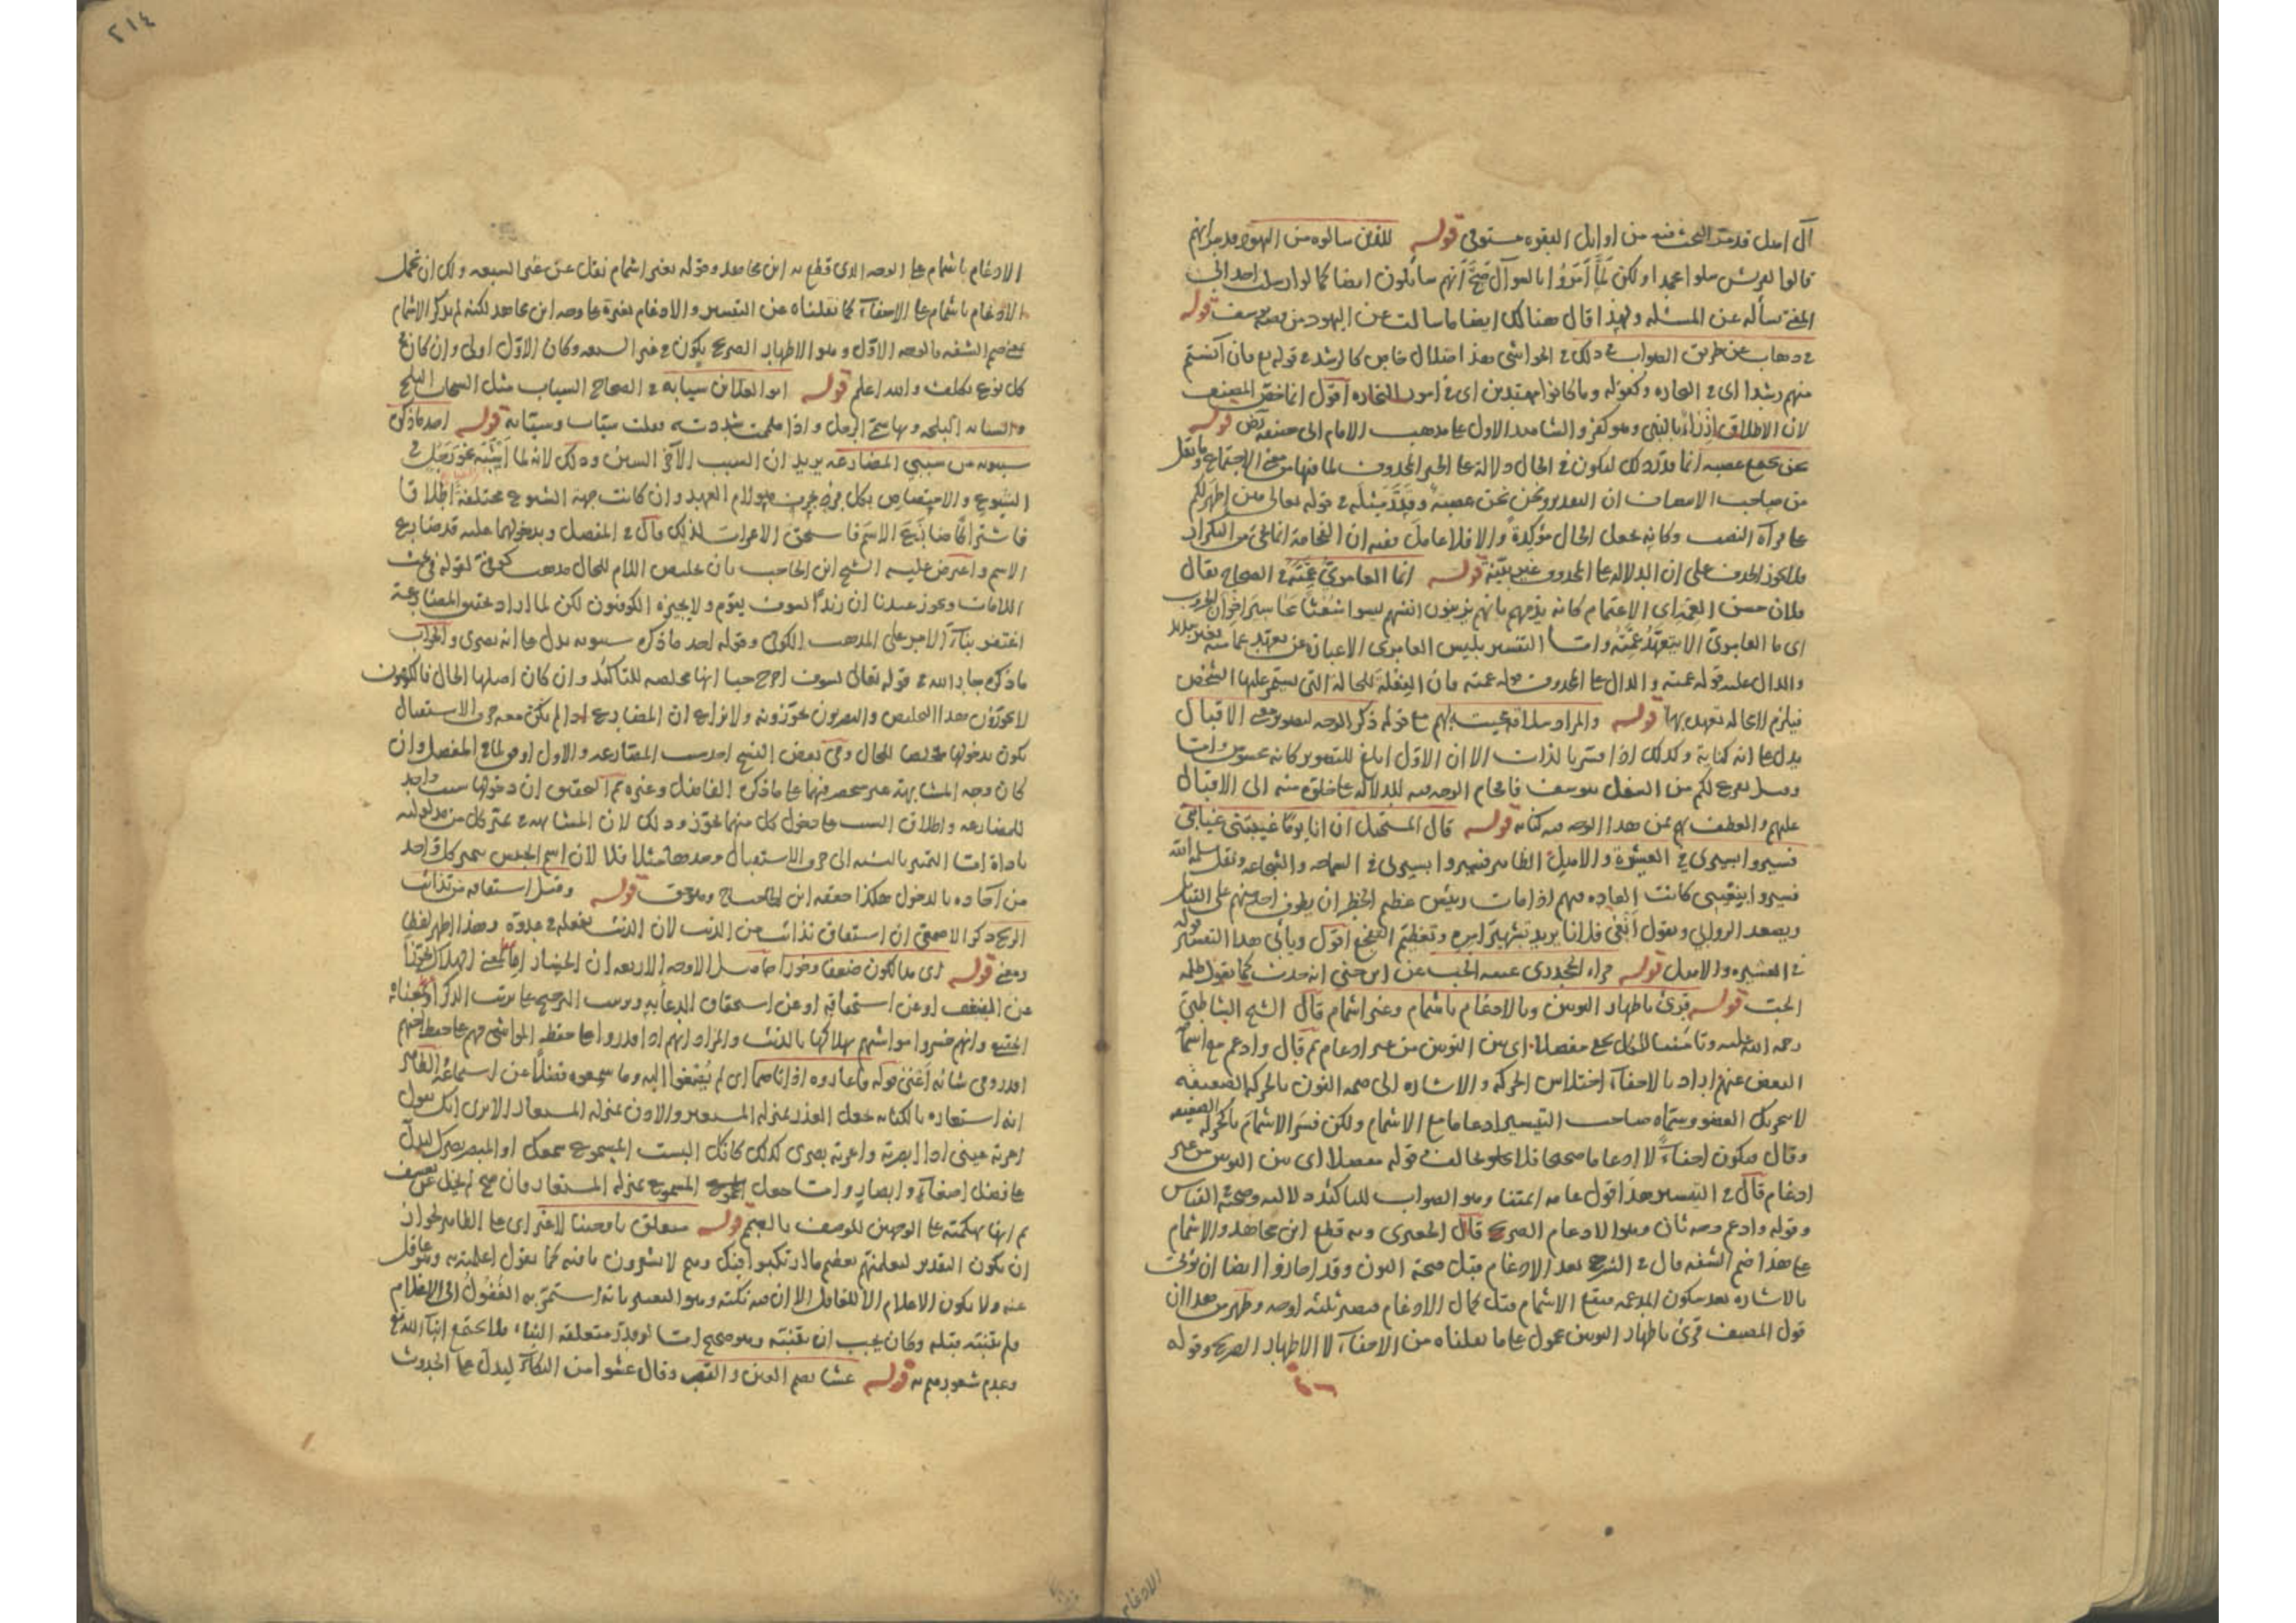 آل اصل قد مر البحث فيه من اوايل البقره مستوفى قوله للذين سالوه من اليهود
قالوا لقريش سلوا محمدا ولكن لما أمروا بالسوآل صح أنهم سائلون ايضا كما لو ارسلت احدا الى
المفتى سأله عن المسئله ولهذا قال هنالك ايضا ما سالت عن اليهود من قصه يوسف قوله
فى ذهاب عن طريق الصواب فى ذلك فى الحواشى هذا ضلال خاص كالرشد فى قوله تع فان آنستم
منهم رشدا اى فى التجاره وكقوله وما كانوا مهتدين اى فى امور التجاره اقول انما خص المصنف
لان الاطلاق ازراء بالنبى وهو كفر والشاهد الاول على مذهب الامام ابى حنيفه قوله
نحن نجتمع عصبه انما قدر ذلك ليكون فى الحال دلالة على الخبر المحذوف لما فيها من معنى الاجتماع
من صاحب الانصاف ان التقدير ونحن نحن عصبة وقدر مثله فى قوله تعالى هن اطهر لكم
على قرآة النصب وكانه يجعل الحال مؤكدة والا فلا عامل ففيه ان الفخامة انما تجئ من التكرار
فلا يجوز الحذف على ان الدلاله على المحذوف غير بينة قوله انما العامرى عمته فى الصحاح يقال
فلان حسن العمه اى الاعتمام كانه يذمهم بانهم يزينون انفسهم ليسوا شعثا
اى ما العامرى الا يتعهد عمته واما التفسير بليس العامرى الا عبارة عن تعهد عمامته
والدال عليه قوله عمته والدال على المحذوف قوله عمته فان الفعلة للحالة التى يستمر عليها الشخص
فيلزم الا حالة تعهد بها قوله والمراد سلامة محبته لهم مع قوله ذكر الوجه لتصوير معنى الاقبال
يدل على انه كناية وكذلك اذا فسر بالذات الا ان الاول ابلغ للتصوير كانه محسوس واما
وقيل يفرغ لكم من الشغل بيوسف فاقحام الوجه فيه للدلالة على خلوه منه الى الاقبال
عليهم والعطف بهم فمن هذا الوجه فيه كناية قوله قال المنخل ان انا يوما غيبتنى غيابتى
فسيروا بسيرى فى العشيرة والاهل الظاهر فسيروا بسيرى فى السماحه والشجاعه ونقل
كانت العاده فيهم اذا مات رئيس عظيم الخطر ان يطوف احد منهم على القبايل
ويصعد الروابى ويقول أنعى فلانا يريد تشهير امره وتعظيم التفجع اقول ويأبى هذا التفسير قوله
فى العشيره والاهل قوله قراء الجحدرى غيبه الجب عن ابن جنى انه حدث كما يقول ظلمة
الجب قوله قرئ باظهار النونين وبالادغام باشمام وغير اشمام قال الشيخ الشاطبى
رحمه الله عليه وتامننا للكل يخفى مفصلا اى بين النونين من غير ادغام ثم قال وادغم مع اشمامه
البعض عنهم اراد بالاخفآء اختلاس الحركه والاشاره الى ضمه النون بالحركه الضعيفه
لا تحريك العضو وسماه صاحب التيسير ادغاما مع الاشمام ولكن فسر الاشمام بالحركه الضعيفه
وقال فيكون اخفآء لا ادغاما صحيحا فلا يخالف قوله مفصلا اى بين النونين من غير
ادغام قال فى التيسير هذا قول عامة ائمتنا وهو الصواب لتاكيد دلالته وصحته فى القياس
وقوله وادغم وجه ثان وهو الادغام الصريح قال الجعبرى وبه قطع ابن مجاهد والاشمام
على هذا ضم الشفه قال فى الشرح بعد الادغام قبل فتحة النون وقد اجازوا ايضا ان يؤتى
بالاشاره بعد سكون المدغم فيقع الاشمام قبل كمال الادغام فيصير ثلثه اوجه وظهر من هذا ان
قول المصنف قرئ باظهار النونين محمول على ما نقلناه من الاخفآء لا الاظهار الصريح وقوله
الادغام
٢١٤
الادغام باشمام على الوجه الذى قطع به ابن مجاهد وقوله بغير اشمام نقل عن غير السبعه ولك ان تحمل
الادغام باشمام على الاخفآء كما نقلناه عن التيسير والادغام بغيره على وجه ابن مجاهد لكنه لم يذكر الاشمام
بمعنى ضم الشفه بالوجه الاول وهو الاظهار الصريح يكون فى غير السبعه وكان الاول اولى وان كان فى
كل نوع تكلف والله اعلم قوله ابو العلا ابن سيابه فى الصحاح السياب مثل السحاب البلح
والسيابه البلحه وبها سمى الرجل واذا ضممت شددت فقلت سيّاب وسيّابه قوله احد ما ذكره
سيبويه من سببى المضارعه يريد ان السبب الآخر السين وذلك لانه لما اشبه نحو رجل فى
الشيوع والاختصاص بكل حرف هو لام العهد وان كانت جهة الشيوع مختلفة اطلاقا
فاشتراكا ضارع الاسم فاستحق الاعراب لذلك قال فى المفصل وبدخولهما عليه قد ضارع
الاسم واعترض عليه الشيخ ابن الحاجب بان تخليص اللام للحال مذهب كوفى لقوله فى بحث
اللامات ويجوز عندنا ان زيدا لسوف يقوم ولا يجيزه الكوفيون لكن لما اراد تحقيق المضارعة
اغتفر بنآء الامر على المذهب الكوفى وقوله احد ما ذكره سيبويه يدل على انه بصرى والجواب
ما ذكره جار الله فى قوله تعالى لسوف اخرج حيا انها مخلصه للتاكيد وان كان اصلها الحال فالكوفيون
لا يجوزون هذا التخليص والبصريون يجوزونه ولا نزاع ان المضارع اذا لم يكن معه حرف الاستقبال
يكون بدخولها مخلصا للحال وفى بعض النسخ احد سببى المضارعه والاول اوفق لما فى المفصل وان
كان وجه المشابهة غير منحصر فيها على ما ذكره الفاضل وغيره ثم التحقيق ان دخولها سبب واحد
للمضارعه واطلاق السبب على دخول كل منهما تجوز وذلك لان المشابهه فى تميز كل من مدلوليه
باداة اما التميز بالنسبه الى حرف الاستقبال وحدها مثلا فلا لان اسم الجنس يتميز كل واحد
من آحاده بالدخول هكذا حققه ابن الحاجب وهو حق قوله وقيل اشتقاقه من تذائب
الريح ذكر الاصمعى ان اشتقاق تذائب من الذئب لان الذئب يفعله فى عدوه وهذا اظهر لفظا
ومعنى قوله اى هالكون ضعفا وخورا حاصل الاوجه الاربعه ان الخسار اما بمعنى الهلاك تجوزا
عن الضعف او عن استحقاقه او عن استحقاق الدعآء به
وانهم خسروا مواشيهم بهلاكها بالذئب والمراد انهم اذا قدروا على حفظ المواشى فهم على حفظ اخيهم
اقدر وفى شانه أغنى قوله فاعاروه اذانا صما اى لم يصغوا اليه وما سمعوه فضلا عن استماعه الظاهر
انه استعاره بالكنايه جعل العذر بمنزله المستعير والاذن بمنزله المستعار الا ترى انك تقول
اعرته عينى اذا ابصرته واعرته بصرى كذلك كانك البست المسموع سمعك او المبصر بصرك ليدل
على فضل اصغآء وابصار واما جعل المسموع بمنزله المستعار فان صح
ثم انها تهكمية على الوجهين للوصف بالصمم قوله متعلق باوحينا لا غير اى على الظاهر لجواز
ان يكون التقدير لتعلمنهم بعظم ما ارتكبوا فيك وهم لا يشعرون بما فيه كما تقول اعلمته به وهو غافل
عنه ولا يكون الاعلام الا للغافل الا ان فيه نكته وهو التفسير بانه استمر به الغفول الى الاعلام
ولم يقيته قبله وكان يجب ان يقيته وهو صحيح اما لو قدر متعلقه النبأ فلا يجتمع انبآء الله تع
وعدم شعورهم به قوله عشا بضم العين والقصر وقال عشوا من البكآء ليدل على الحدوث